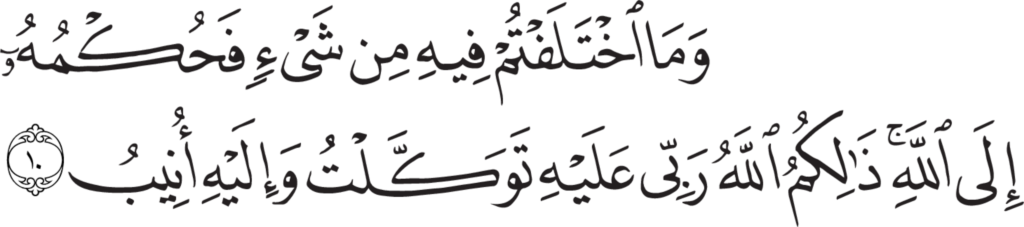 وَمَا ٱخْتَلَفْتُمْ فِيهِ مِن شَىْءٍ فَحُكْمُهُۥٓ
إِلَى ٱللَّهِ ۚ ذَٰلِكُمُ ٱللَّهُ رَبِّى عَلَيْهِ تَوَكَّلْتُ وَإِلَيْهِ أُنِيبُ ١٠